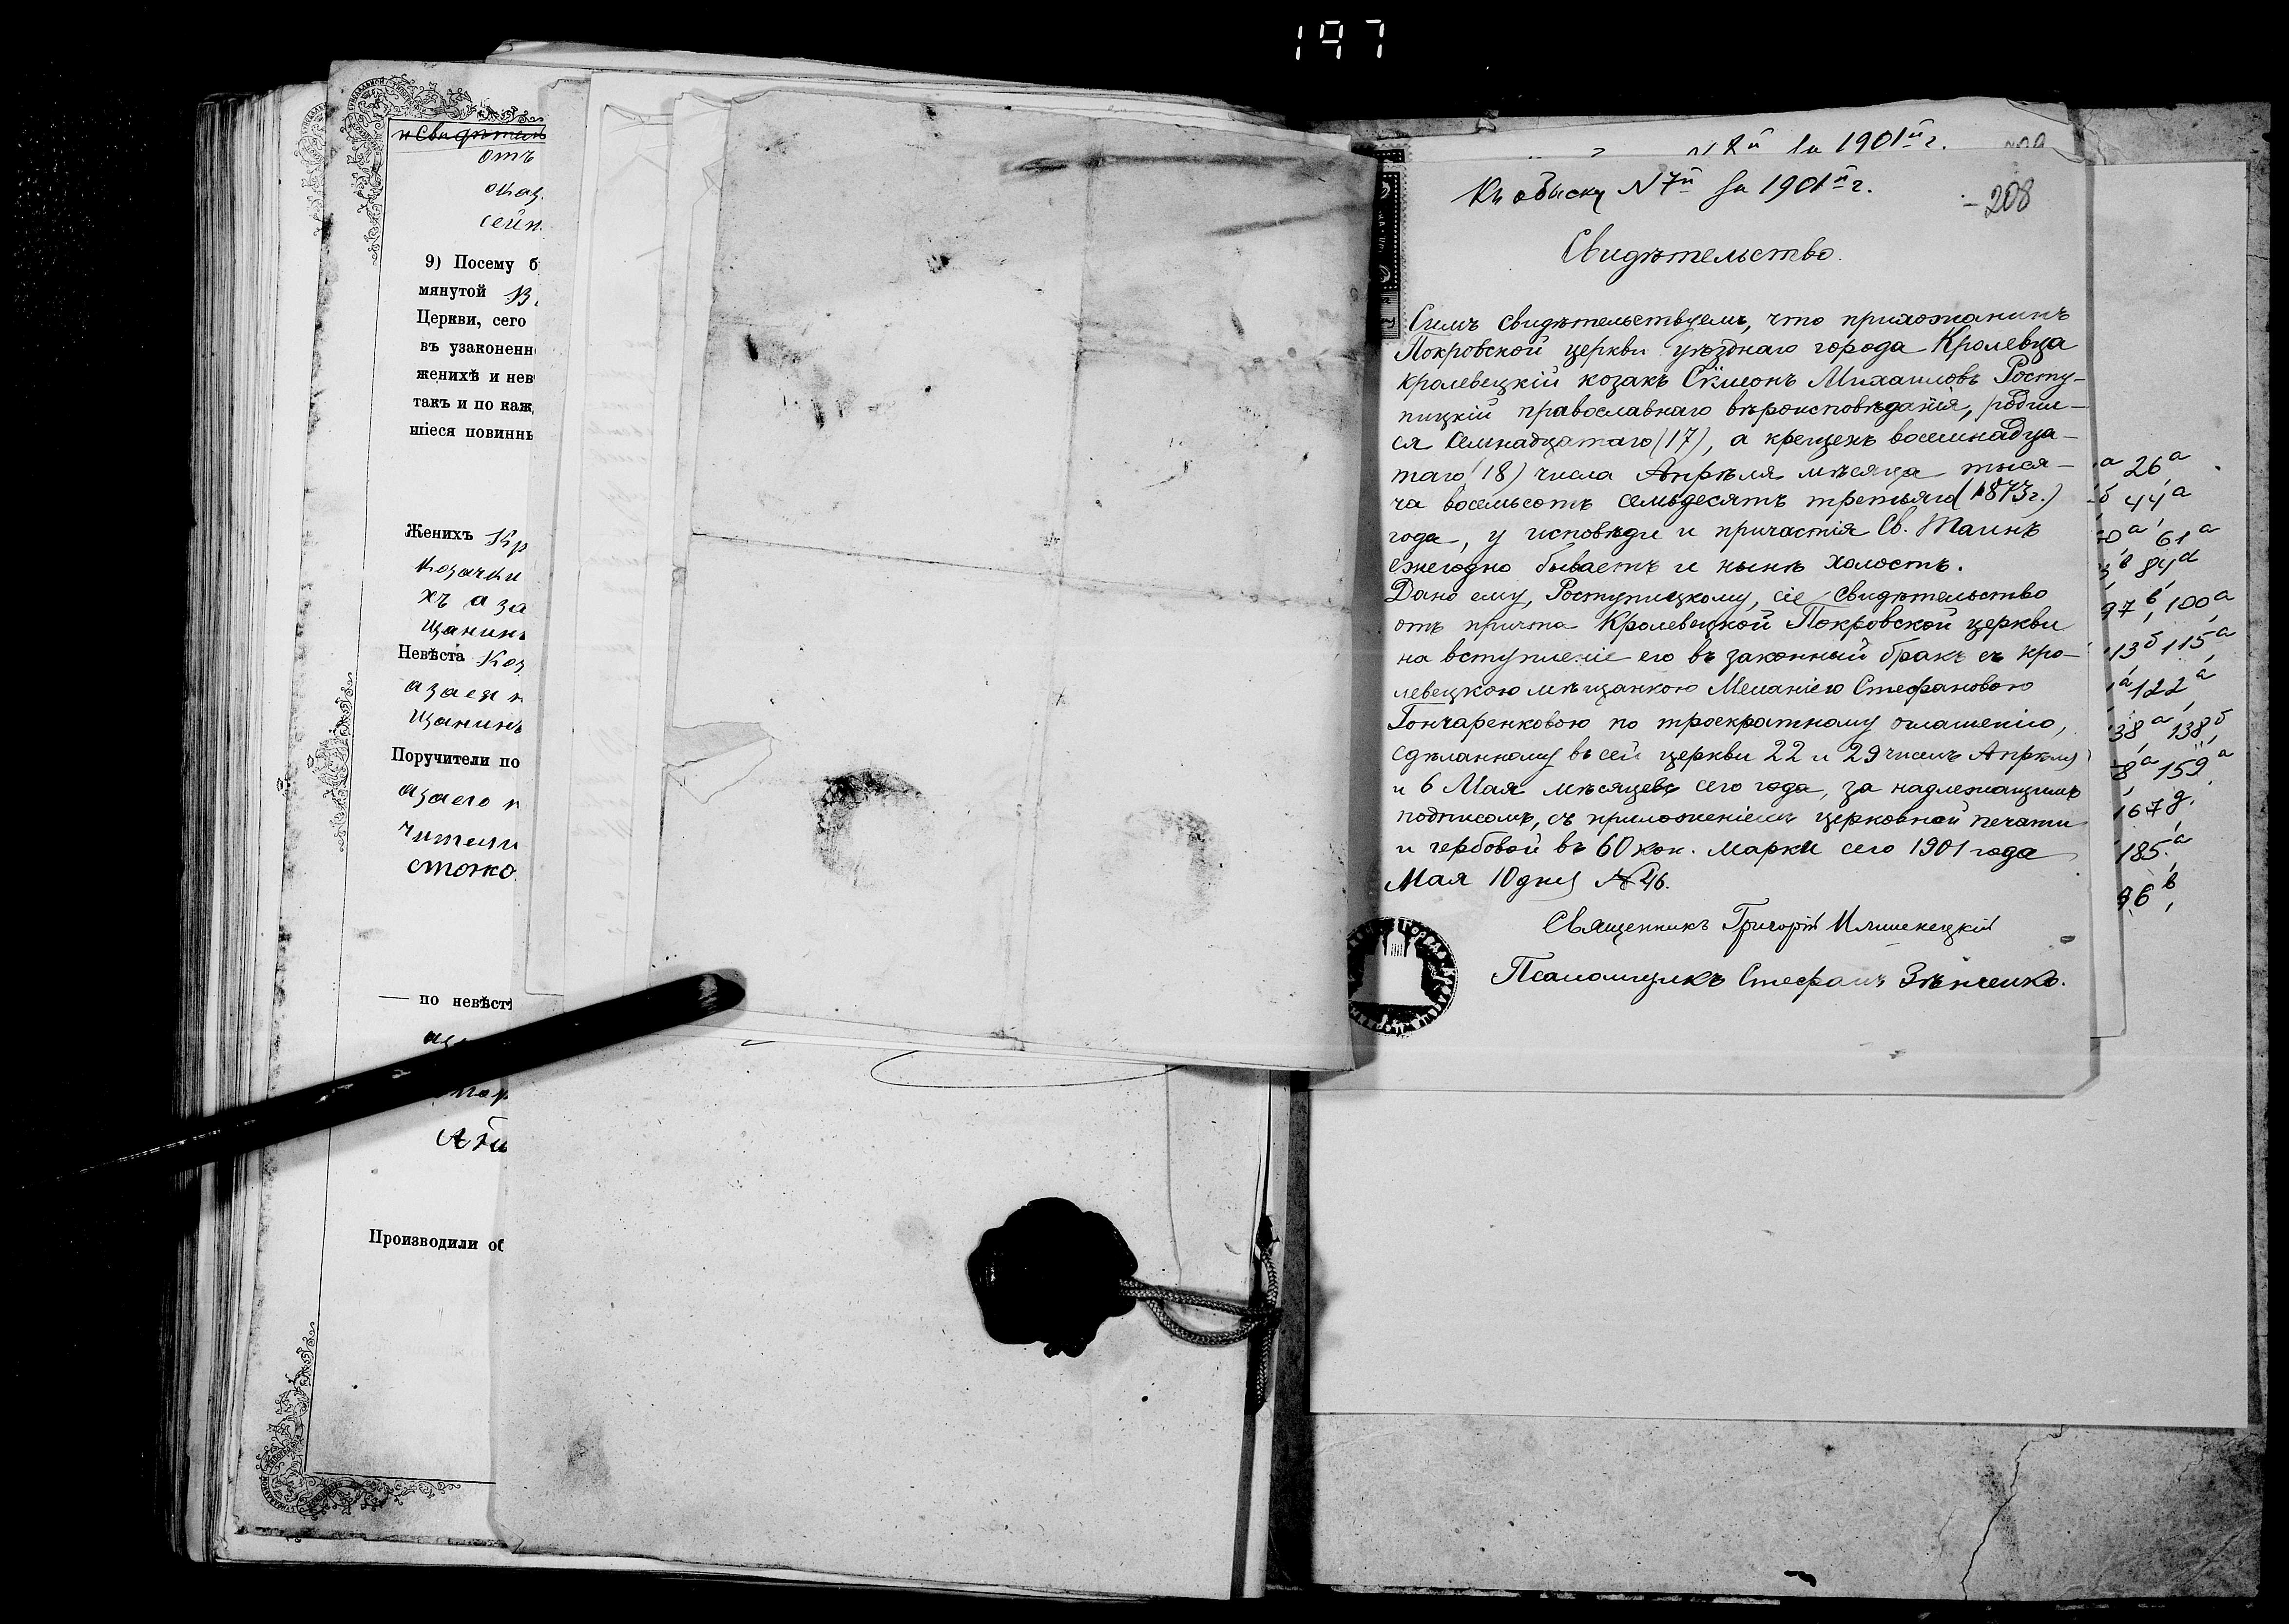 197
отъ
9) Посему б
мянутой
Церкви, сего
въ узаконенн
женихѣ и нев
такъ и по каж
шіеся повиннь
Женихъ
козачки
щанинъ
Невѣста
щанинъ
Поручители по
по невѣст
Производили об
1901й г.
Къ обыску N 7й за 1901й г.
208
Свидѣтельство.
Симъ свидѣтельствуемъ, что прихожанинъ
Покровской церкви уѣзднаго города Кролевца
кролевецкій козакъ Сѵмеонъ Михаиловъ Росту-
пицкій православнаго вѣроисповѣданія, родил-
ся семнадцатаго (17), а крещенъ восемнадца-
таго (18) числа Апрѣля мѣсяца тыся-
ча восемьсотъ семьдесятъ третьяго (1873 г.)
года, у исповѣди и причастія Св. Таинъ
ежегодно бываетъ и нынѣ холостъ.
Дано ему, Роступицкому, сіе свидѣтельство
отъ причта Кролевецкой Покровской церкви
на вступленіе его въ законный бракъ съ кро-
левецкою мѣщанкою Меланіею Стефановою
Гончаренковою по троекратному оглашенію,
сдѣланному въ сей церкви 22 и 29 числъ Апрѣля
и 6 Мая мѣсяцевъ сего года, за надлежащимъ
подписомъ, съ приложеніемъ церковной печати
и гербовой въ 60 коп. марки сего 1901 года
Мая 10 дня № 46.
Священникъ Григорій
Псаломщикъ Стефанъ Зѣнченко.
а 26а
б 44а
а 61а
в 84d
97в, 100а
13б 115а
а 122а
38а 138б
8а 159а
167д.
185.а
96в,